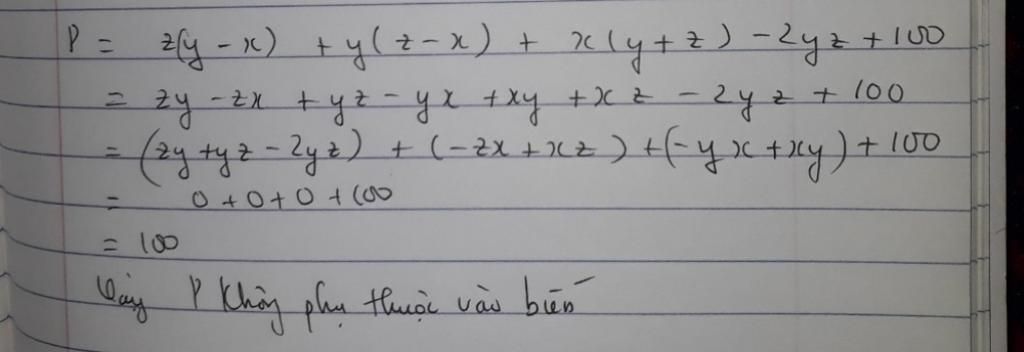 P = z(y - x) + y(z - x) + x(y + z) - 2yz + 100
= zy - zx + yz - yx + xy + xz - 2yz + 100
= (zy + yz - 2yz) + (-zx + xz) + (-yx + xy) + 100
= 0 + 0 + 0 + 100
= 100
Vậy P không phụ thuộc vào biến